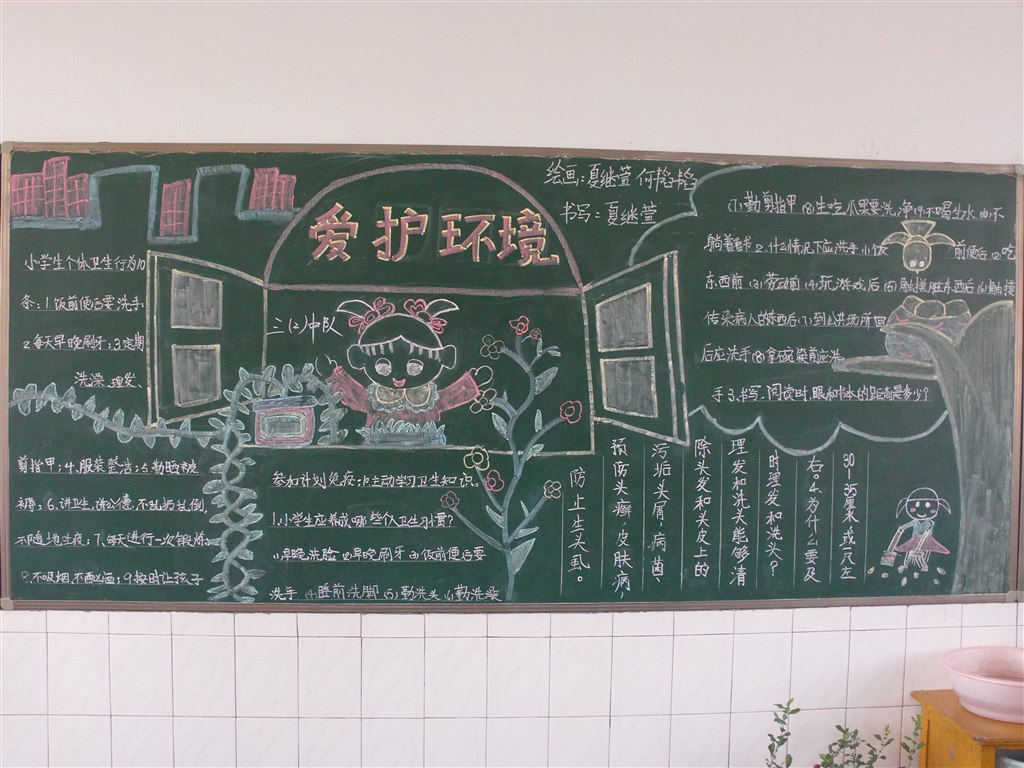 爱护环境
绘画:夏继萱 何韬韬
书写:夏继萱
三(2)中队
小学生个体卫生行为10
条:1.饭前便后要洗手;
2.每天早晚刷牙;3.定期
洗澡、理发、
剪指甲;4.服装整洁;5.勤晒被
褥;6.讲卫生,讲公德,不乱扔乱倒,
不随地吐痰;7.每天进行一次锻炼;
8.不吸烟,不酗酒;9.按时让孩子
参加计划免疫;10.主动学习卫生知识.
1.小学生应养成哪些个人卫生习惯?
(1)早晚洗脸 (2)早晚刷牙 (3)饭前便后要
洗手 (4)睡前洗脚 (5)勤洗头 (6)勤洗澡
(7)勤剪指甲 (8)生吃瓜果要洗净(9)不喝生水 (10)不
躺着看书 2.什么情况下应洗手 (1)饭前便后 (2)吃
东西前 (3)劳动前 (4)玩游戏后 (5)触摸脏东西后 (6)触摸
传染病人的东西后 (7)到公共场所回
后应洗手 (8)拿碗筷前应洗
手 3.书写、阅读时,眼和书本的距离是多少?
30—35厘米或一尺左
右。4.为什么要及
时理发和洗头?
理发和洗头能够清
除头发和头皮上的
污垢、头屑,病菌,
预防头癣,皮肤病,
防止生头虱。